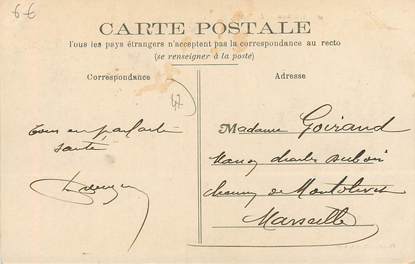 6€
CARTE POSTALE
Tous les pays étrangers n'acceptent pas la correspondance au recto
(se renseigner à la poste)
Correspondance
Adresse
47
Tous en parfaite
santé
Madame Goirand
chemin de Montolivet
Marseille